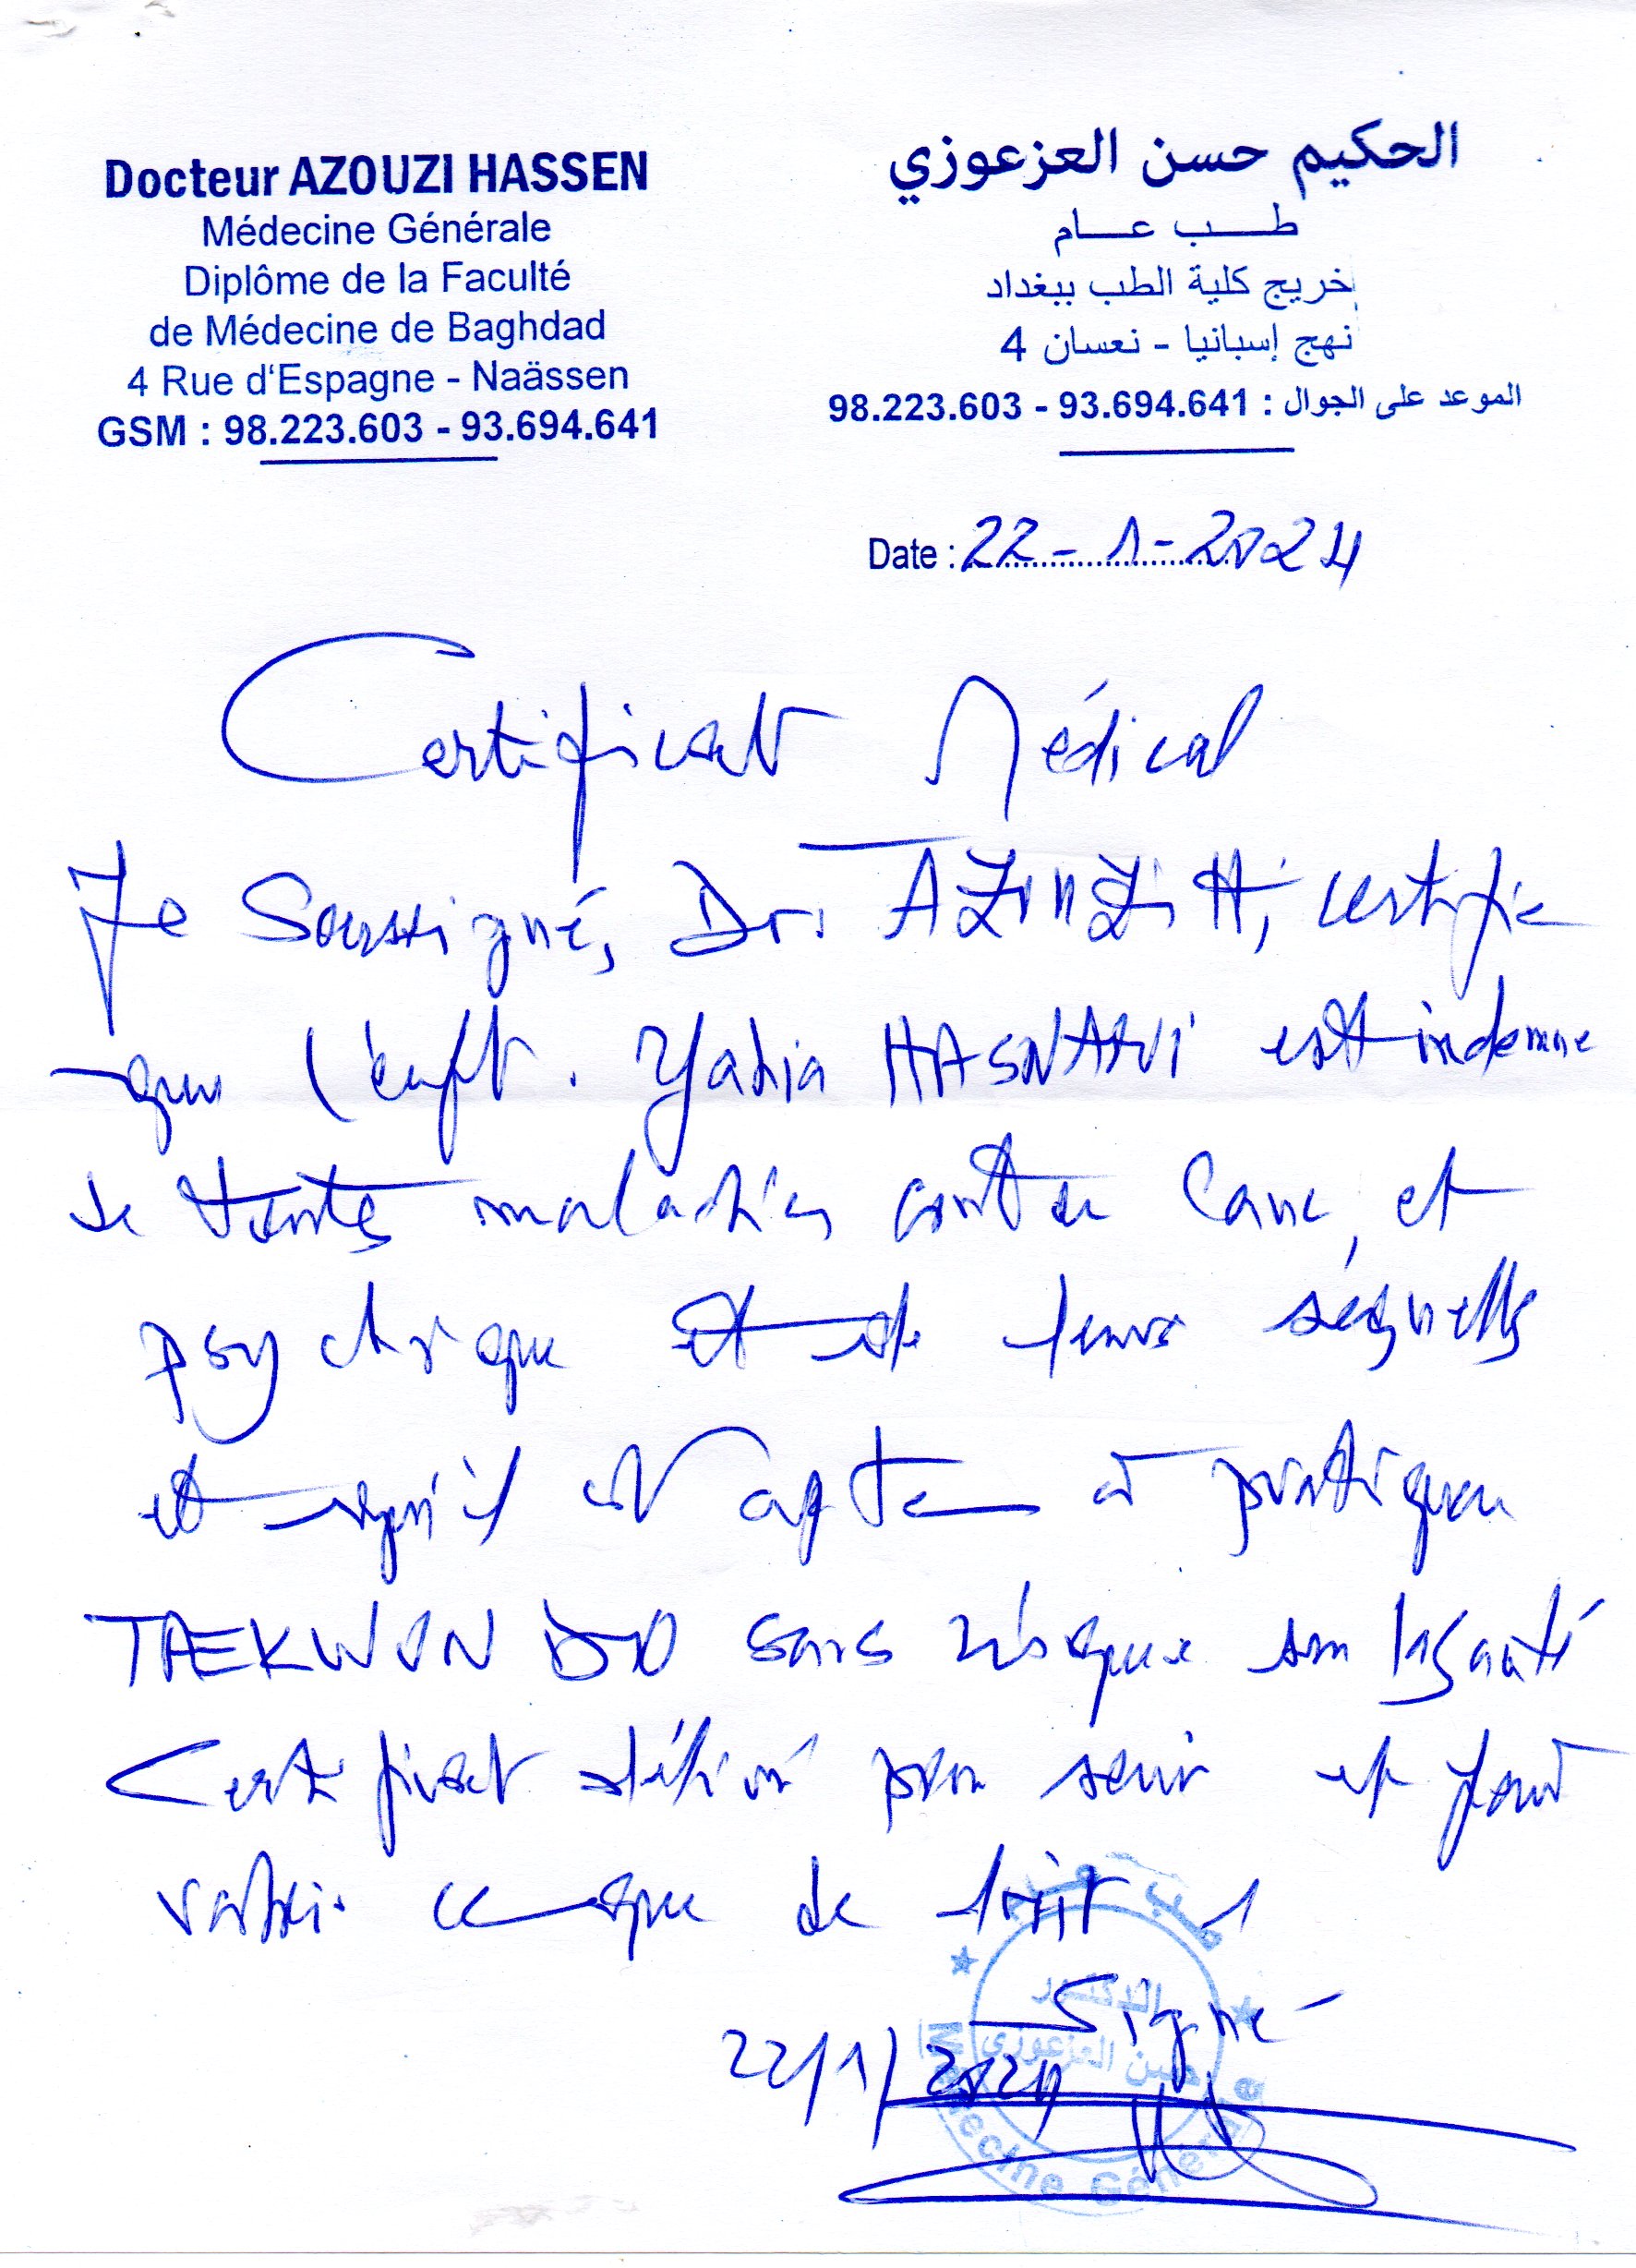 Docteur AZOUZI HASSEN
Médecine Générale
Diplôme de la Faculté
de Médecine de Baghdad
4 Rue d'Espagne - Naässen
GSM : 98.223.603 - 93.694.641
الحكيم حسن العزعوزي
طب عام
خريج كلية الطب ببغداد
4 نهج إسبانيا - نعسان
الموعد على الجوال : 93.694.641 - 98.223.603
Date : 22-1-2024
Certificat Médical
Je Soussigné, Dr. AZOUZI H, certifie
que l'enft. Yahia HASNAOUI est indemne
de toutes maladies et
psychique et de leurs séquelles
et qu'il est apte à pratiquer
TAEKWON DO sans risque sur la santé
Certificat délivré pour servir et faire
valoir ce que de droit
Signé
22/1/2024
الدكتور
حسن العزعوزي
Médecine Générale